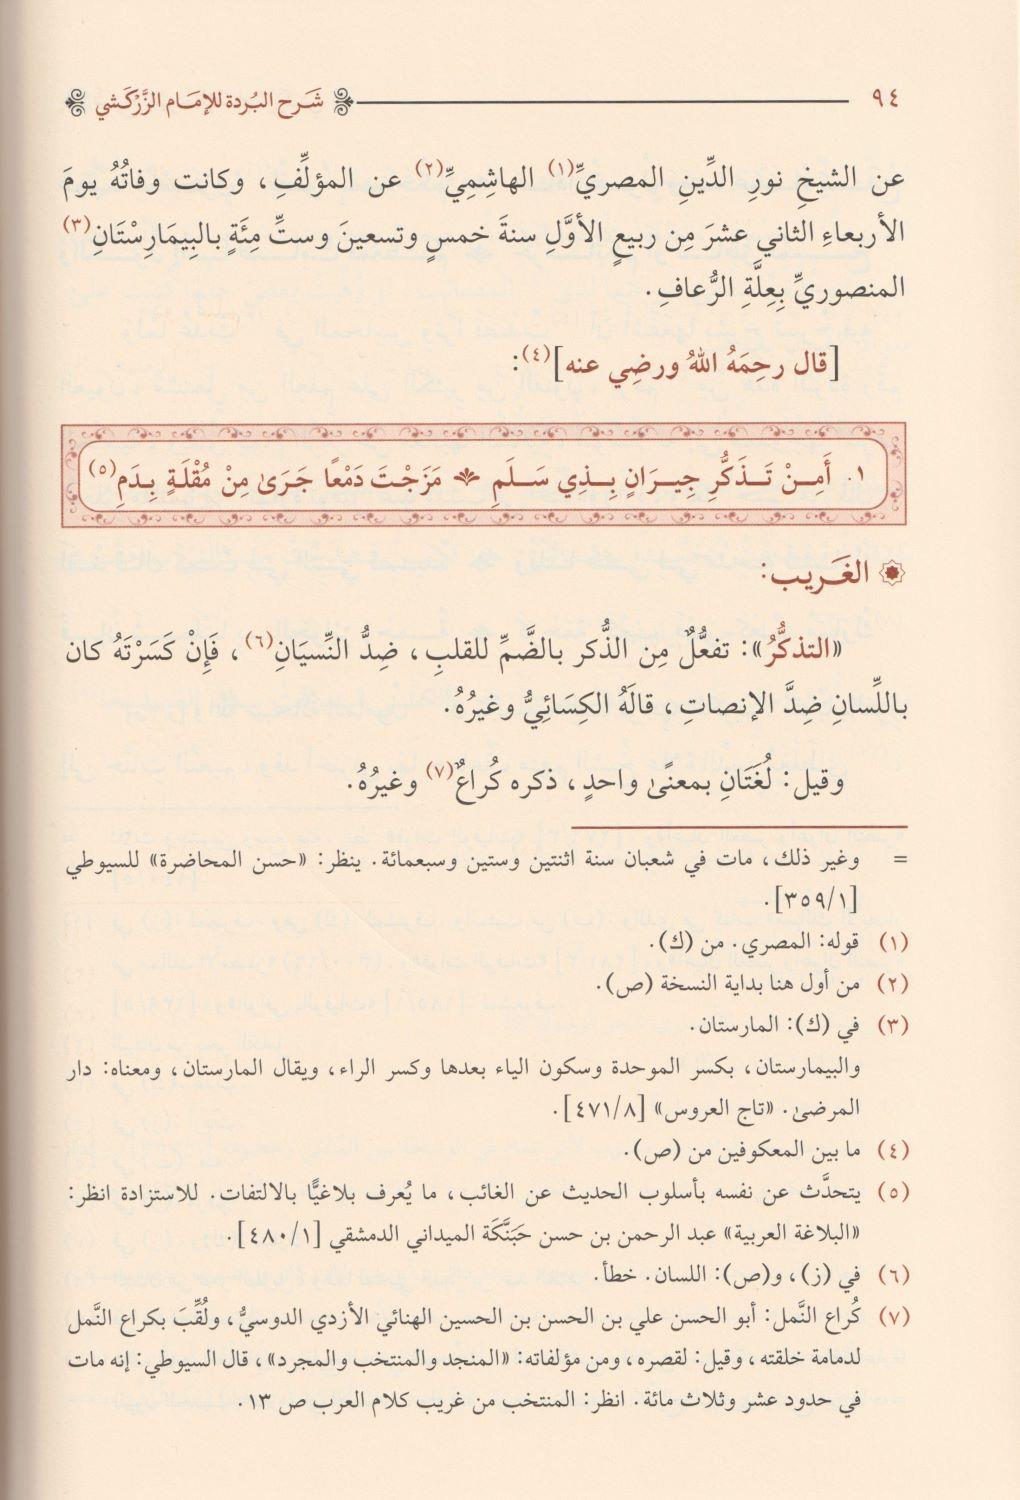 ٩٤ شَرح البُردة للإمَام الزَّرْكَشي
عن الشيخِ نورِ الدِّينِ المصريِّ(١) الهاشِمِيِّ(٢) عن المؤلِّفِ، وكانت وفاتُهُ يومَ
الأربعاءِ الثاني عشرَ مِن ربيعٍ الأوَّلِ سنةَ خمسٍ وتسعينَ وستِّ مِئَةٍ بالبِيمَارِسْتَانِ(٣)
المنصوريِّ بِعِلَّةِ الرُّعافِ.
[قال رحِمَهُ اللهُ ورضِي عنه](٤):
١. أَمِنْ تَذَكُّرِ جِيرَانٍ بِذِي سَلَمِ مَزَجْتَ دَمْعًا جَرَىٰ مِنْ مُقْلَةٍ بِدَمِ(٥)
الغَريب:
«التذكُّرُ»: تفعُّلٌ مِن الذُّكر بالضَّمِّ للقلبِ، ضِدُّ النِّسيَانِ(٦)، فَإِنْ كَسَرْتَهُ كان
باللِّسانِ ضِدَّ الإنصاتِ، قالَهُ الكِسَائِيُّ وغيرُهُ.
وقيل: لُغَتَانِ بمعنًىٰ واحدٍ، ذكره كُراعٌ(٧) وغيرُهُ.
= وغير ذلك، مات في شعبان سنة اثنتين وستين وسبعمائة. ينظر: «حسن المحاضرة» للسيوطي
[٣٥٩/١].
(١) قوله: المصري. من (ك).
(٢) من أول هنا بداية النسخة (ص).
(٣) في (ك): المارستان.
والبيمارستان، بكسر الموحدة وسكون الياء بعدها وكسر الراء، ويقال المارستان، ومعناه: دار
المرضىٰ. «تاج العروس» [٤٧١/٨].
(٤) ما بين المعكوفين من (ص).
(٥) يتحدَّث عن نفسه بأسلوب الحديث عن الغائب، ما يُعرف بلاغيًّا بالالتفات. للاستزادة انظر:
«البلاغة العربية» عبد الرحمن بن حسن حَبَنَّكَة الميداني الدمشقي [٤٨٠/١].
(٦) في (ز)، و(ص): اللسان. خطأ.
(٧) كُراع النَّمل: أبو الحسن علي بن الحسن بن الحسين الهنائي الأزدي الدوسيُّ، ولُقِّبَ بكراع النَّمل
لدمامة خلقته، وقيل: لقصره، ومن مؤلفاته: «المنجد والمنتخب والمجرد»، قال السيوطي: إنه مات
في حدود عشر وثلاث مائة. انظر: المنتخب من غريب كلام العرب ص ١٣.